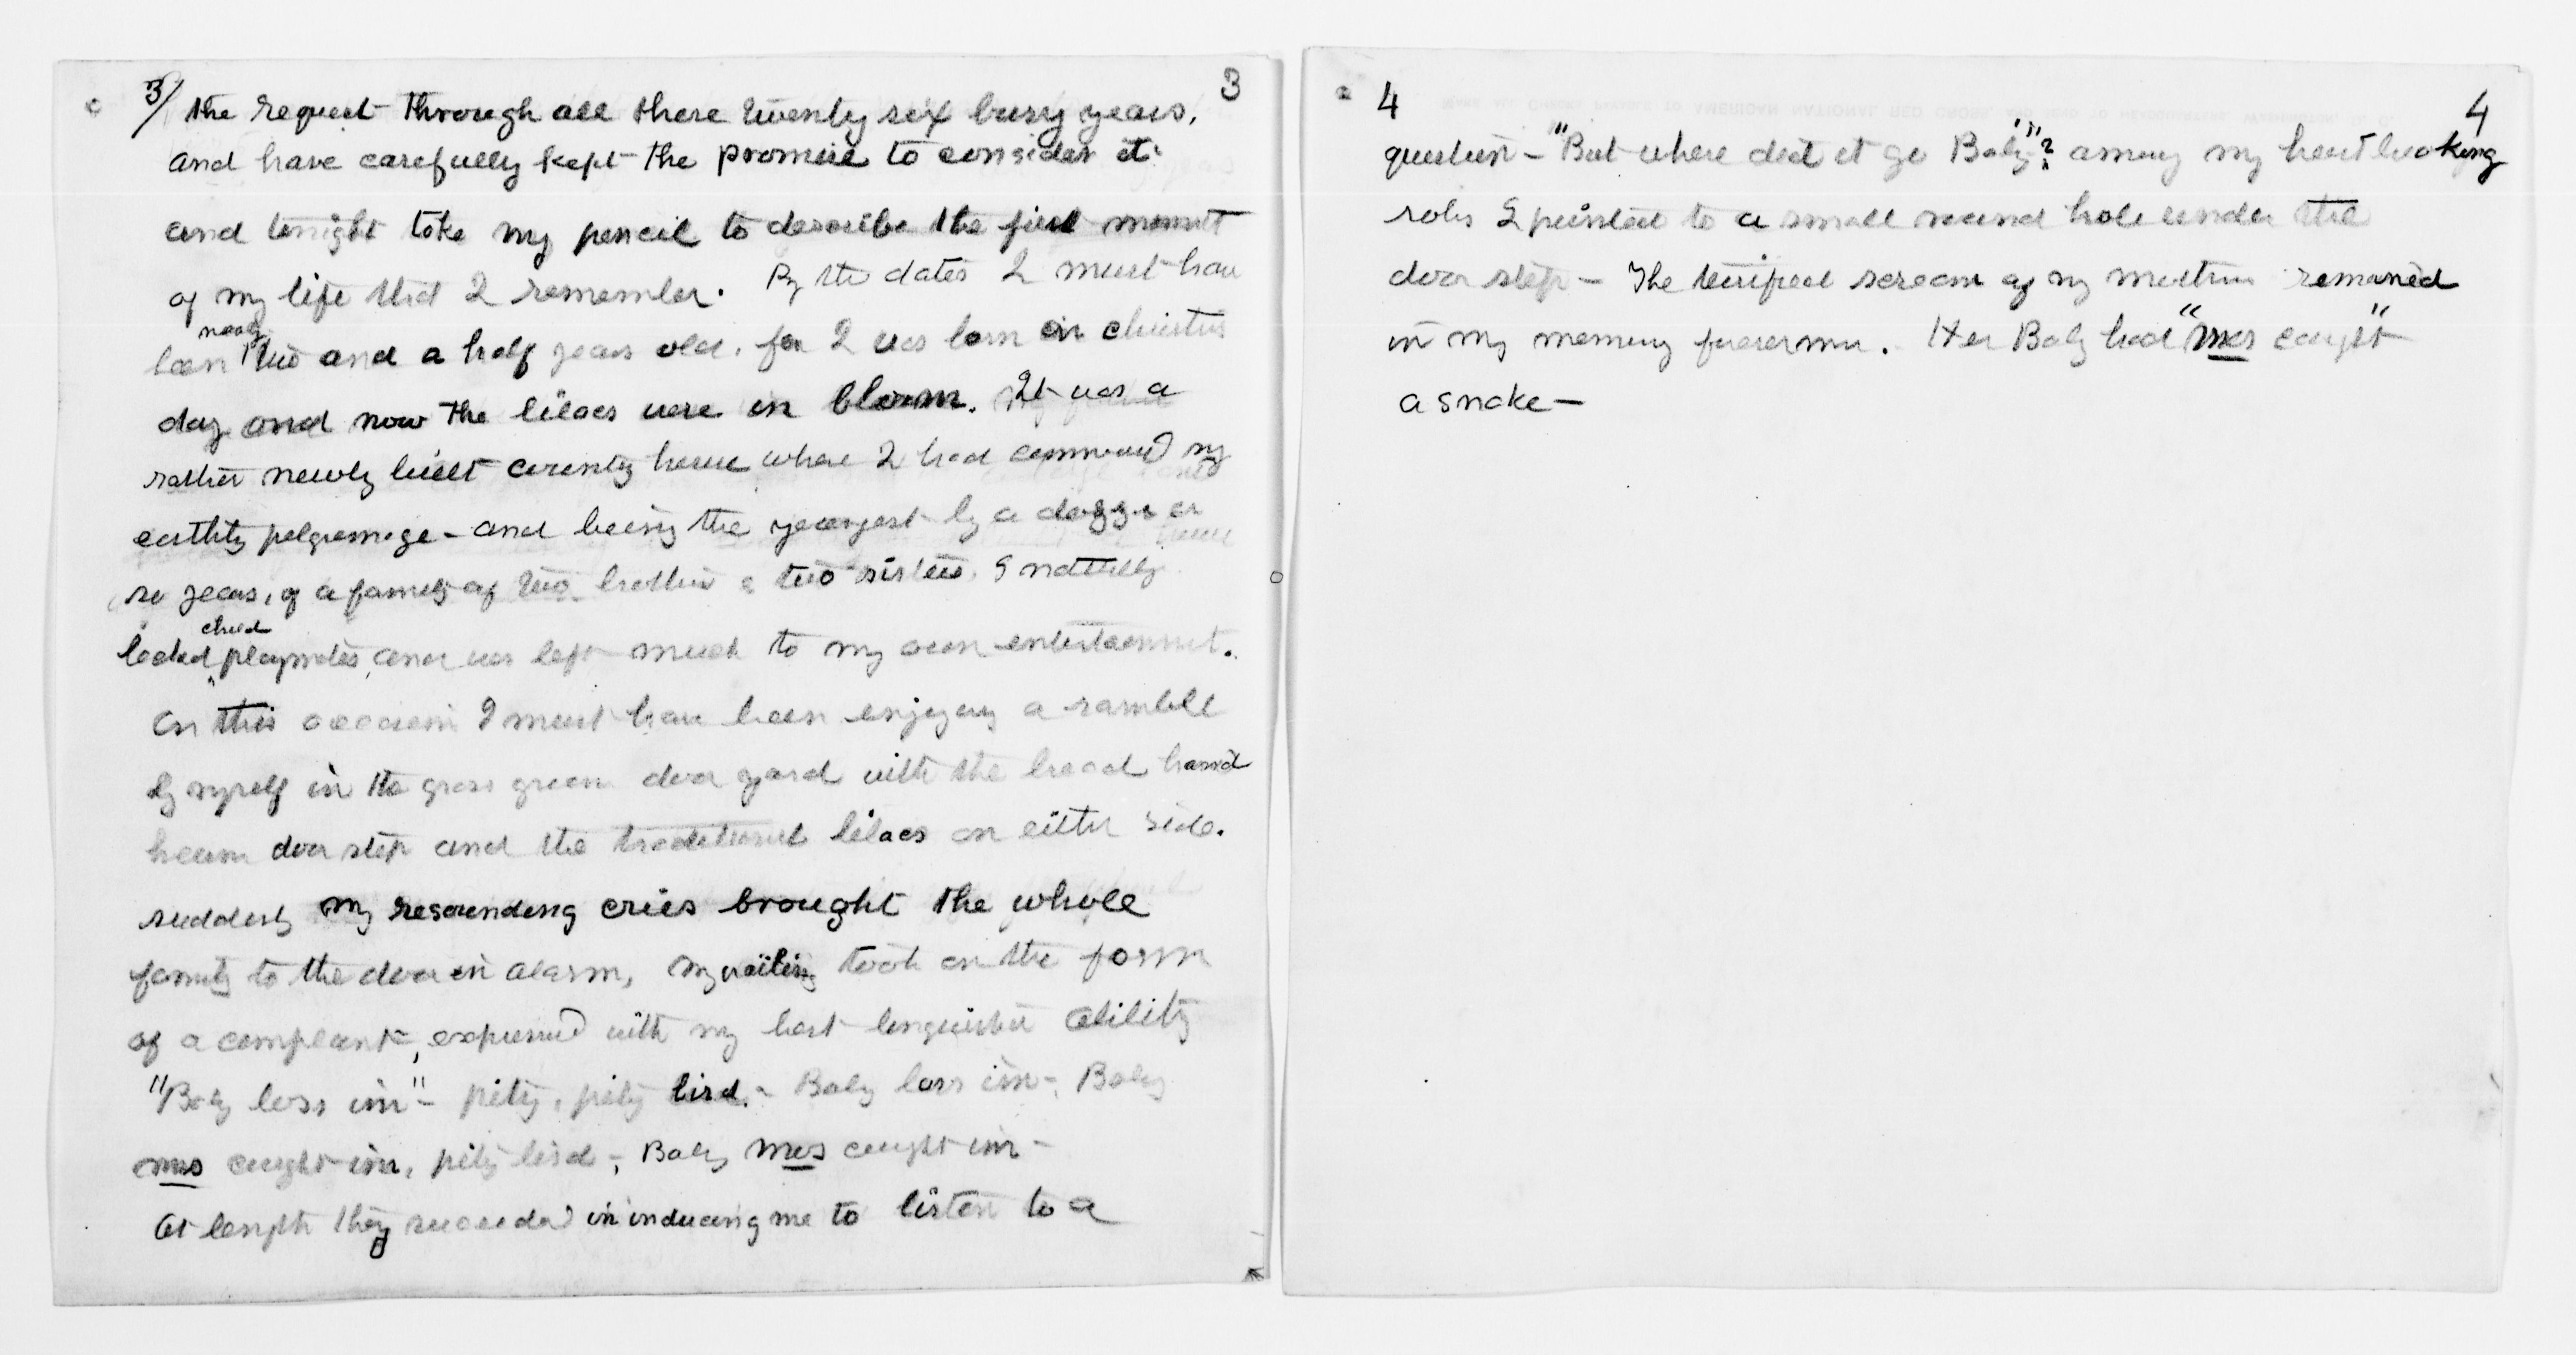 3/ 3
the request through all these twenty six busy years,
and have carefully kept the promise to consider it:
and tonight take my pencil to describe the first moment
of my life that I remember. By the dates I must have
been nearly two and a half years old, for I was born on christmas
day and now the lilacs were in bloom. It was a
rather newly built country house where I had commenced my
earthly pilgrimage - and being the youngest by a dozen or
so years, of a family of two brothers & two sisters, I naturally
lacked child playmates, and was left much to my own entertainment.
On this occasion I must have been enjoying a ramble
by myself in the grass green door yard with the broad hand
hewn door step and the traditional lilacs on either side.
suddenly my resounding cries brought the whole
family to the door in alarm, my wailing took on the form
of a complaint, expressed with my best linguistic ability
"Baby loss im" - pity, pity bird. - Baby loss im -, Baby
mos caught im, pity bird -, Baby mos caught im -
At length they succeeded in inducing me to listen to a
4 4
question - "But where did it go Baby"? among my heart breaking
sobs I pointed to a small round hole under the
door step - The terrified scream of my mother remained
in my memory forevermore. Her Baby had "mos caught"
a snake -